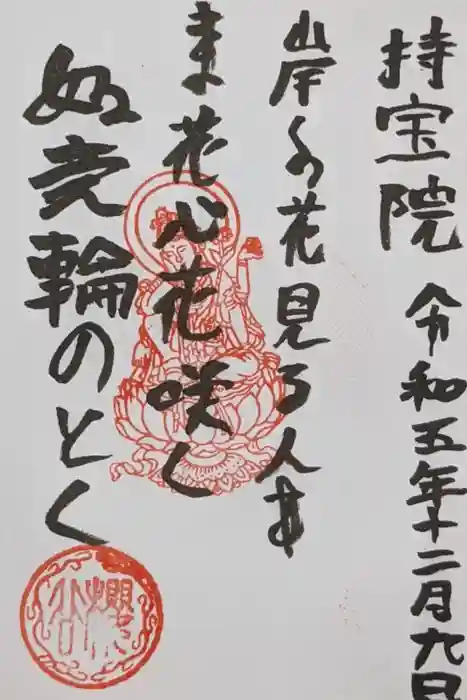 持宝院 令和五年十二月九日
岸の花見る人も
また花心花咲く
如意輪のとく